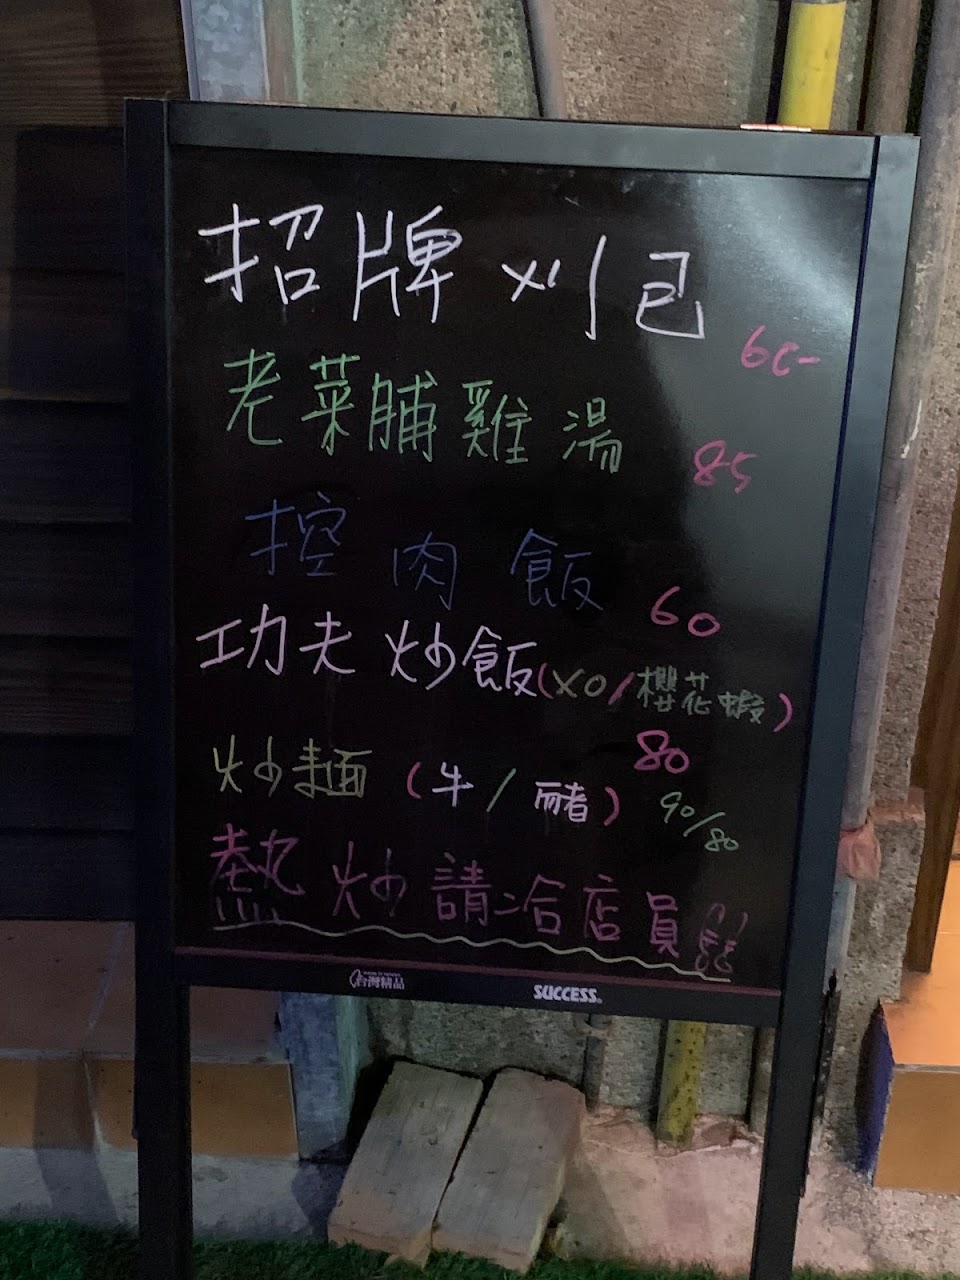 招牌刈包
60-
老菜脯雞湯
85
控肉飯
60
功夫炒飯(XO/櫻花蝦)
80
炒麵(牛/豬) 90/80
熱炒請洽店員!!
台灣精品
SUCCESS